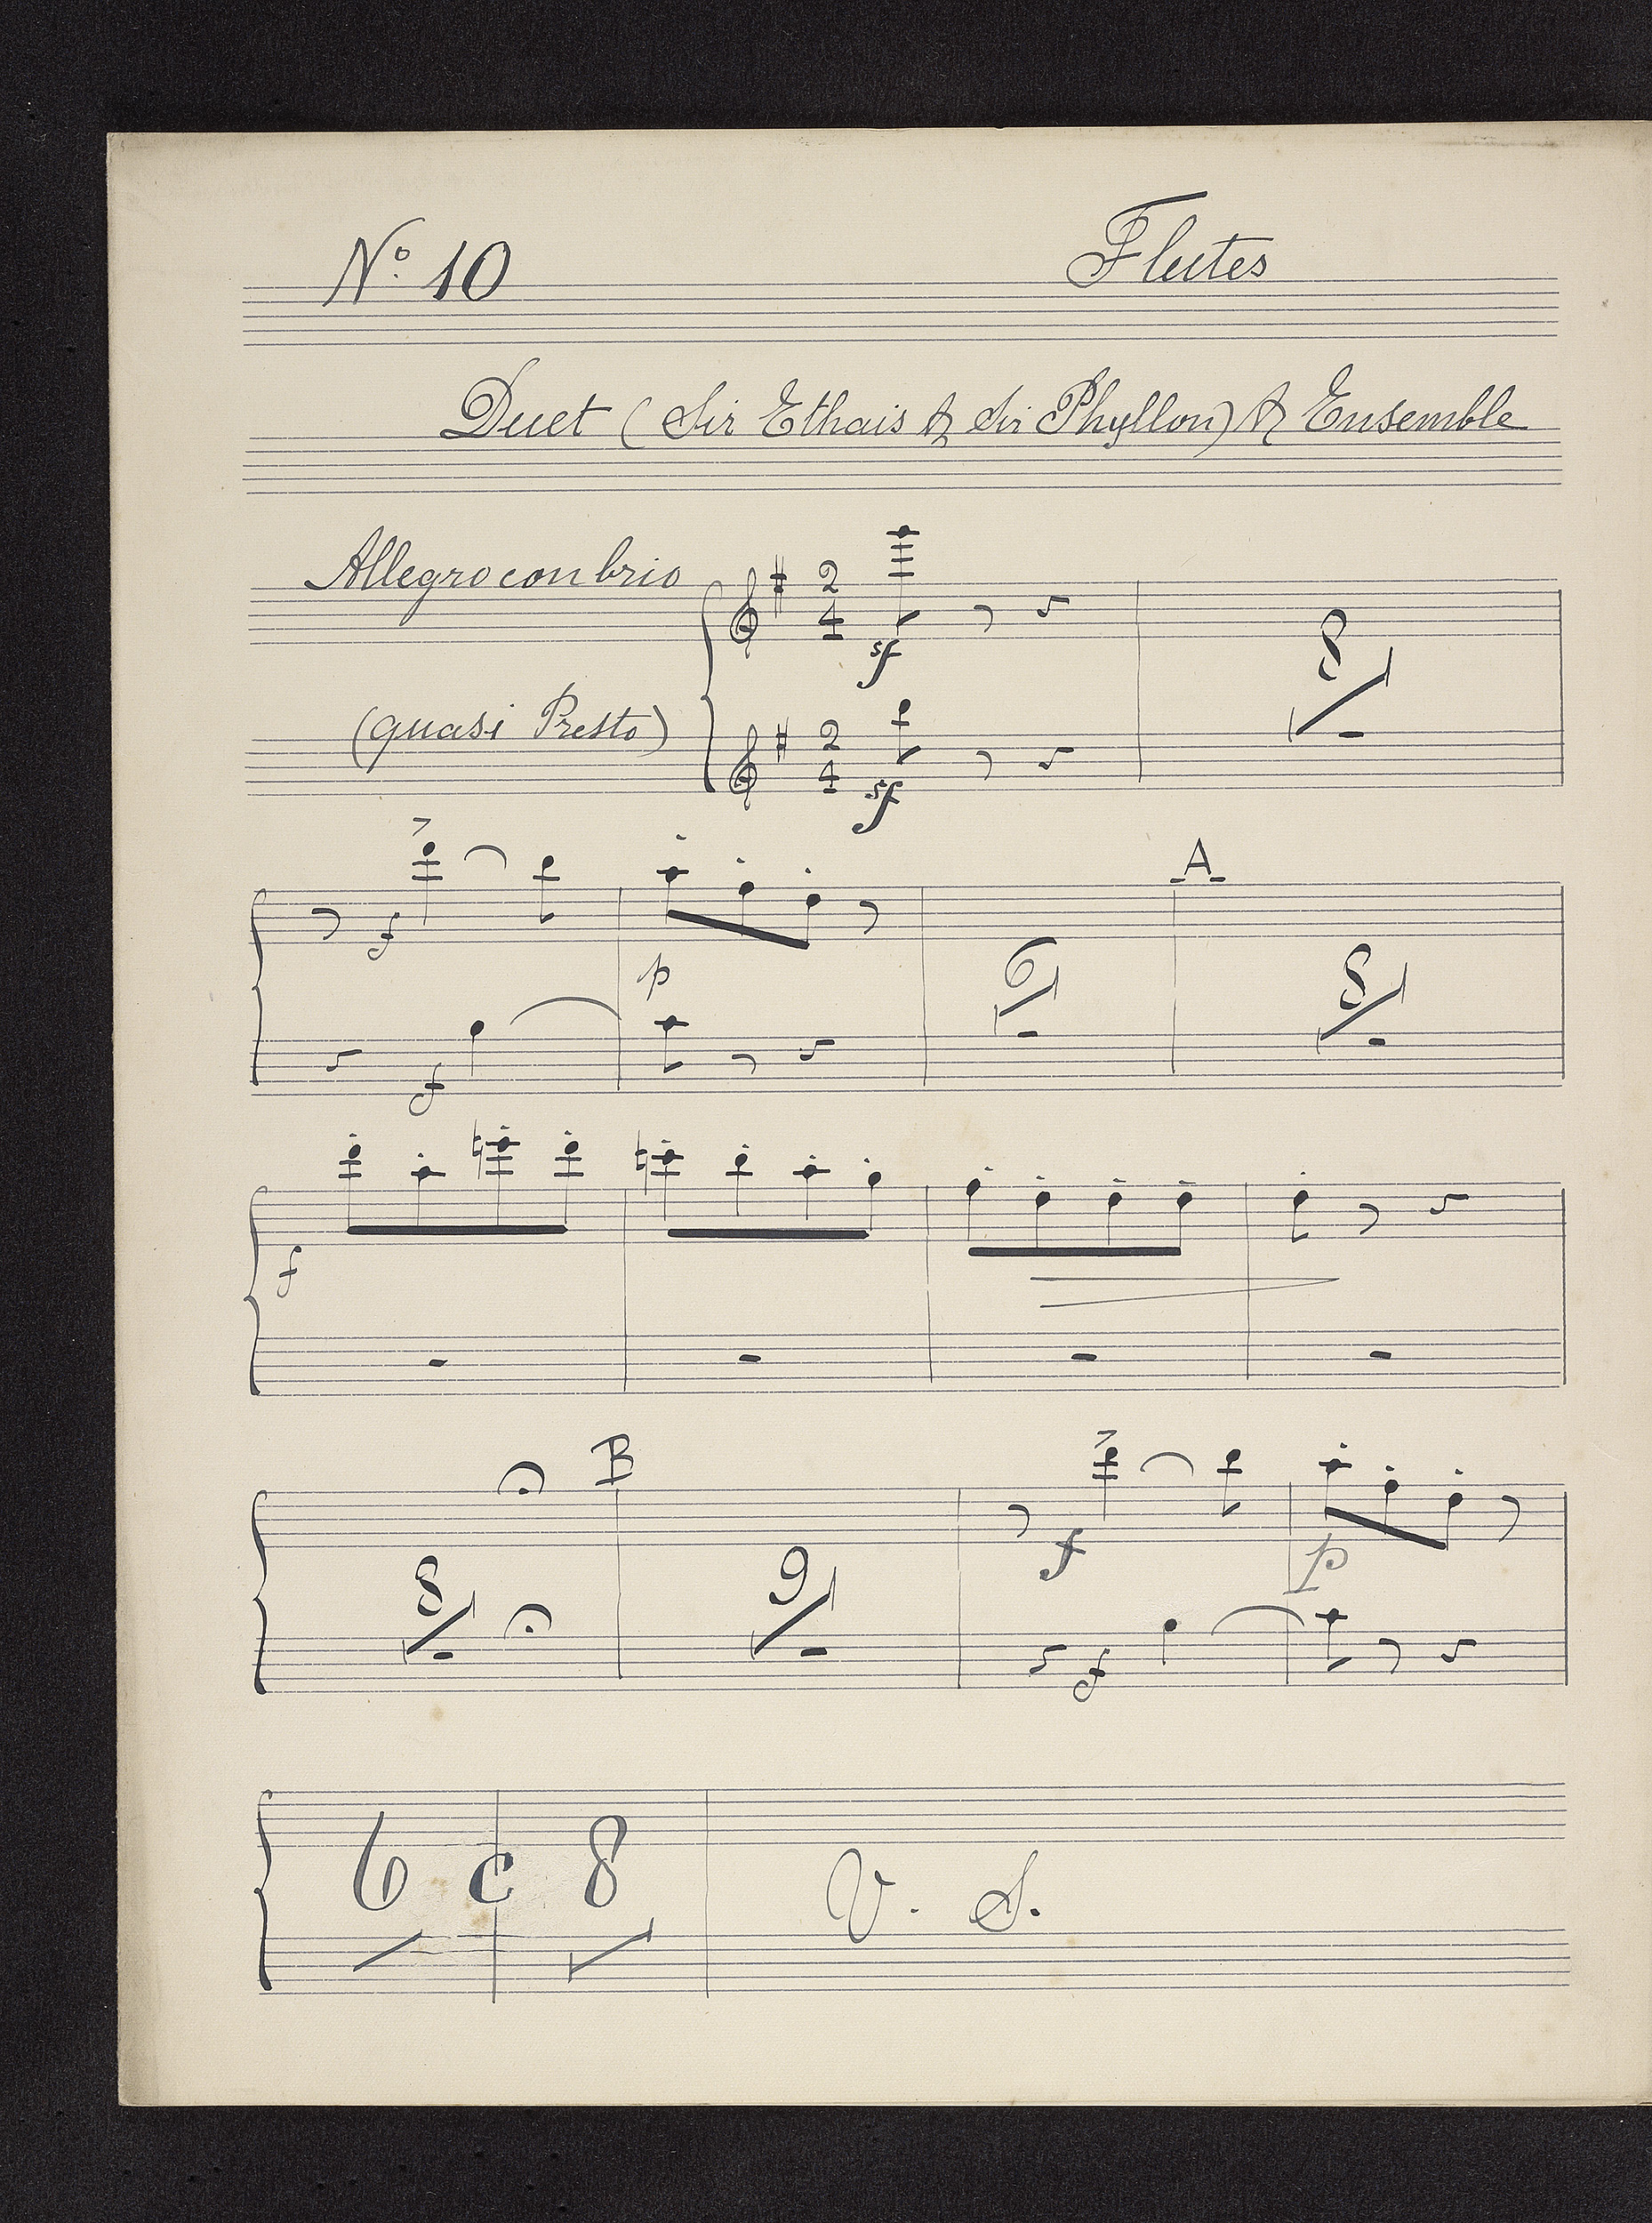 Nº 10 Flutes
Duet (Sir Ethais & Sir Phyllon) & Ensemble
Allegro con brio
2 4 sf 8
(quasi Presto) 2 4 sf
A
f p
6 8
f
f
B
8 9 f p
f
6 C 8 V. S.